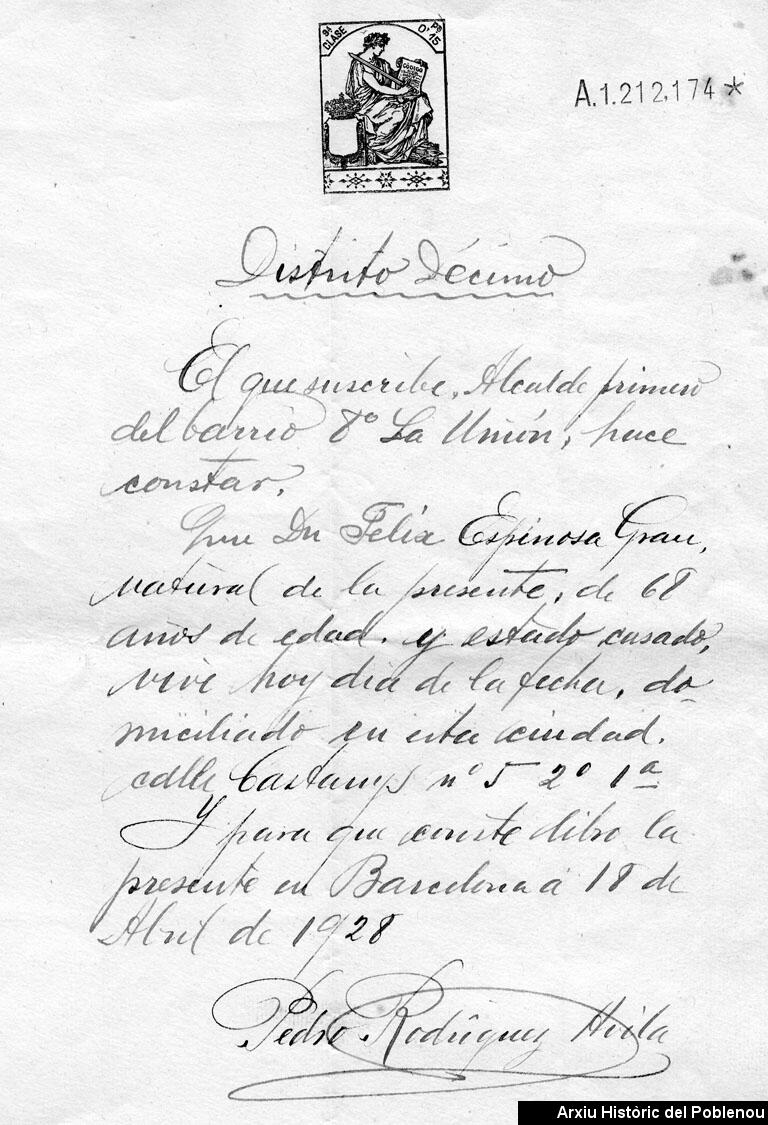 9ª CLASE
Pº 0'15
CÓDIGO
A.1.212,174 *
Distrito Décimo
El que suscribe, Alcalde primero
del barrio 8º La Unión, hace
constar,
Que Dn Felix Espinosa Grau,
natural de la presente, de 68
años de edad. y estado casado,
vive hoy dia de la fecha, do-
miciliado en esta ciudad.
calle Castanys nº 5 2º 1ª
Y para que conste libro la
presente en Barcelona á 18 de
Abril de 1928
Pedro Rodríguez Avila
Arxiu Històric del Poblenou